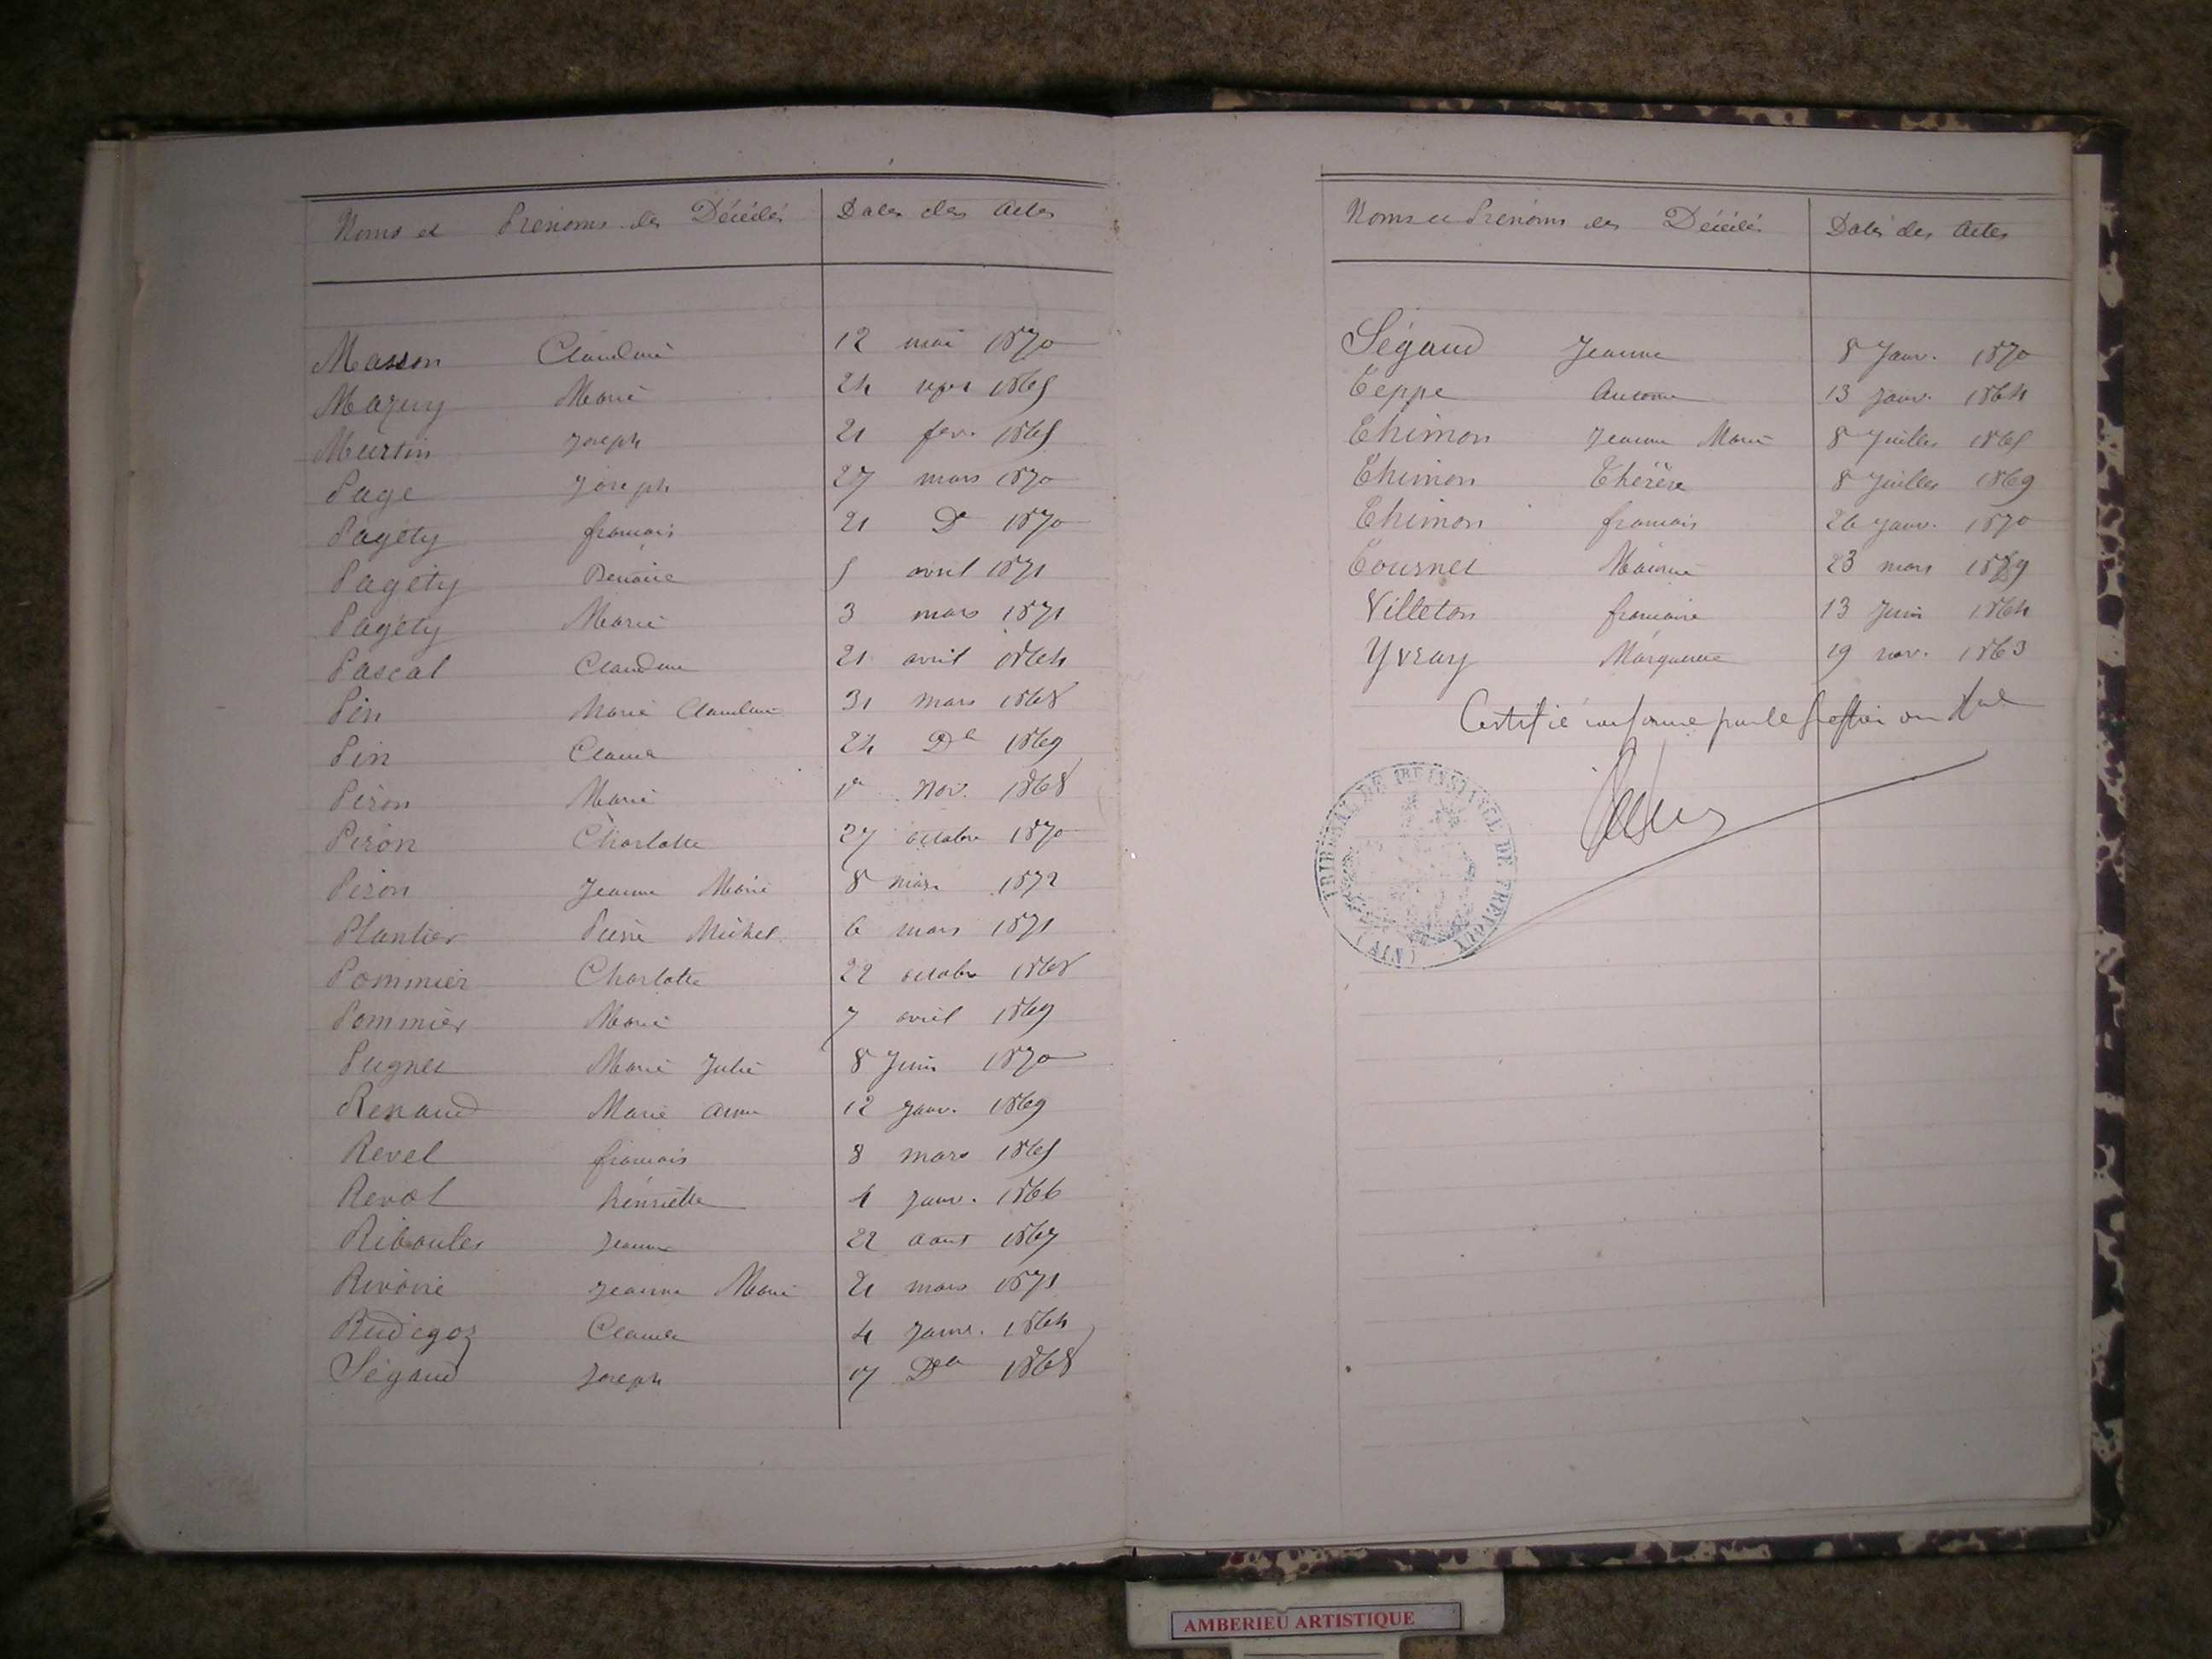 Noms et Prenoms des Décédés Dates des Actes
Masson Claudine 12 mai 1870
Mazuy Marie 24 1865
Murtin Joseph 21 fev. 1865
Page Joseph 27 mars 1870
Pagéty francois 21 Do 1870
Pagéty 5 avril 1871
Pagéty Marie 3 mars 1871
Pascal Claudine 21 avril 1864
Pin Marie Claudine 31 mars 1868
Pin Claude 24 Do 1869
Piron Marie 1er Nov. 1868
Piron Charlotte 27 octobre 1870
Piron Jeanne Marie 8 mars 1872
Plantier Pierre Michel 6 mars 1871
Pommier Charlotte 22 octobre 1868
Pommier Marie 7 avril 1869
Pugnet Marie Julie 8 Juin 1870
Renaud Marie Anne 12 Janv. 1869
Revel francois 8 mars 1865
Revol henriette 4 Janv. 1866
Riboulet Jeanne 22 aout 1867
Rivoire Jeanne Marie 21 mars 1871
Rudigoz Claude 4 Janv. 1864
Ségaud Joseph 17 Do 1868
Noms et Prenoms des Décédés Dates des Actes
Ségaud Jeanne 8 Janv. 1870
Teppe Antoine 13 Janv. 1864
Thimon Jeanne Marie 8 Juillet 1865
Thimon Thérèse 8 Juillet 1869
Thimon francois 26 Janv. 1870
Tournet 23 mars 1869
Villeton francoise 13 Juin 1864
Yvray Marguerite 19 nov. 1863
Certifié conforme par le Greffier
TRIBUNAL DE 1RE INSTANCE DE TREVOUX
(AIN)
AMBERIEU ARTISTIQUE